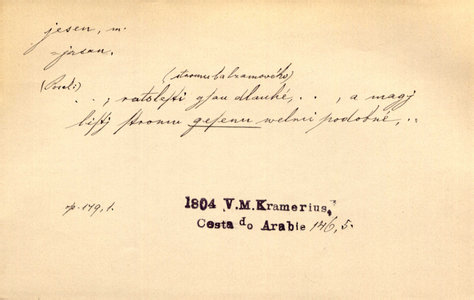 jesen, m.
-jasan.
(stromu balzamového)
(Pouští)
. ., ratolesti gsau dlauhé, . ., a magj
listj stromu gesenu welmi podobné, . .
sp. 179, 1.
1804 V.M.Kramerius,
Cesta do Arabie 146, 5.